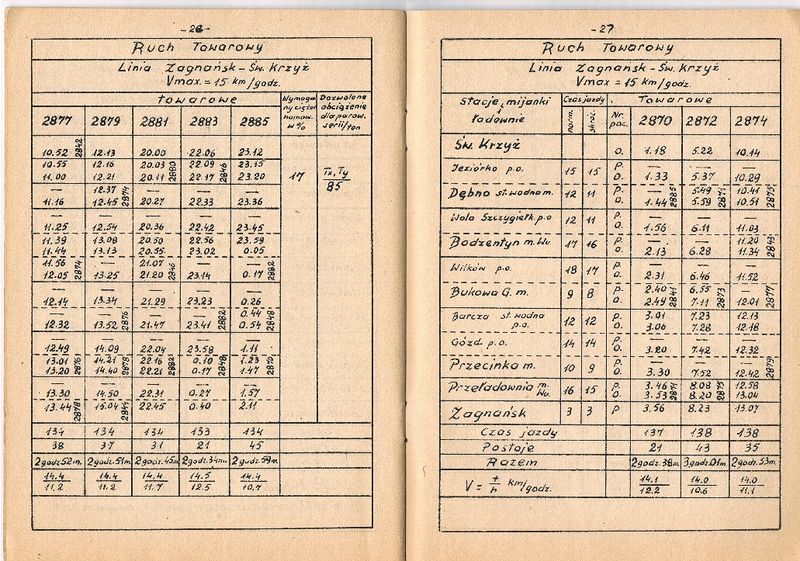 - 26 -
Ruch Towarowy
Linia Zagnańsk - Św. Krzyż
Vmax. = 15 km/godz.
towarowe Wymaga- Dozwolone
ny ciężar obciążenie
2877 2879 2881 2883 2885 hamow. dla parow.
w % serii/ton
10.52 2842 12.13 20.00 22.06 23.12
10.55 12.16 20.03 22.09 23.15
11.00 12.21 20.11 2880 22.17 2846 23.20 17 Tx, Ty
— 12.37 — — — 85
11.16 12.45 2874 20.27 22.33 23.36
— — — — —
11.25 12.54 20.36 22.42 23.45
11.39 13.08 20.50 22.56 23.59
11.44 13.13 20.55 23.02 0.05
11.56 — 21.07 — —
12.05 2874 13.25 21.20 2846 23.14 0.17 2882
— — — — —
12.14 13.34 21.29 23.23 0.26
— — — — 0.44
12.32 13.52 2876 21.47 23.41 2882 0.54 2848
— — — — —
12.49 14.09 22.04 23.58 1.11
13.01 14.21 22.16 0.10 1.23
13.20 2876 14.40 2878 22.21 2882 0.17 2848 1.47 2870
— — — — —
13.30 14.50 22.31 0.27 1.57
13.44 2878 15.04 2844 22.45 0.40 2.11
134 134 134 133 134
38 37 31 21 45
2 godz 52 m. 2 godz. 51 m. 2 godz. 45 m. 2 godz. 34 m. 2 godz. 59 m.
14.4 14.4 14.4 14.5 14.4
11.2 11.2 11.7 12.5 10.7
- 27 -
Ruch Towarowy
Linia Zagnańsk - Św. Krzyż
Vmax. = 15 km/godz.
Stacje, mijanki Czas jazdy Nr. Towarowe
ładownie norm. skróc. poc. 2870 2872 2874
Św. Krzyż O. 1.18 5.22 10.14
Jeziórko p.o. 15 15 P. — — —
O. 1.33 5.37 10.29
Dębno st. wodna m. 12 11 P. — 5.49 10.41
O. 1.44 2885 5.59 2871 10.51 2875
Wola Szczygiełk. p.o 12 11 P. — — —
O. 1.56 6.11 11.03
Bodzentyn m. Wu. 17 16 P. — — 11.20
O. 2.13 6.28 11.34 2843
Wilków p.o. 18 17 P. — — —
O. 2.31 6.46 11.52
Bukowa G. m. 9 8 P. 2.40 6.55 —
O. 2.49 2841 7.11 2873 12.01 2877
Barcza st. wodna 12 12 P. 3.01 7.23 12.13
p.o. O. 3.06 7.28 12.18
Gózd p.o. 14 14 P. — — —
O. 3.20 7.42 12.32
Przecinka m. 10 9 P. — — —
O. 3.30 7.52 12.42 2879
Przeładownia m. 16 15 P. 3.46 8.08 12.58
Wu. O. 3.53 2871 8.20 2875 13.04
Zagnańsk 3 3 P 3.56 8.23 13.07
Czas jazdy 137 138 138
Postoje 21 43 35
Razem 2 godz. 38 m. 3 godz. 01 m. 2 godz. 53 m.
V = t/h km/godz. 14.1 14.0 14.0
12.2 10.6 11.1